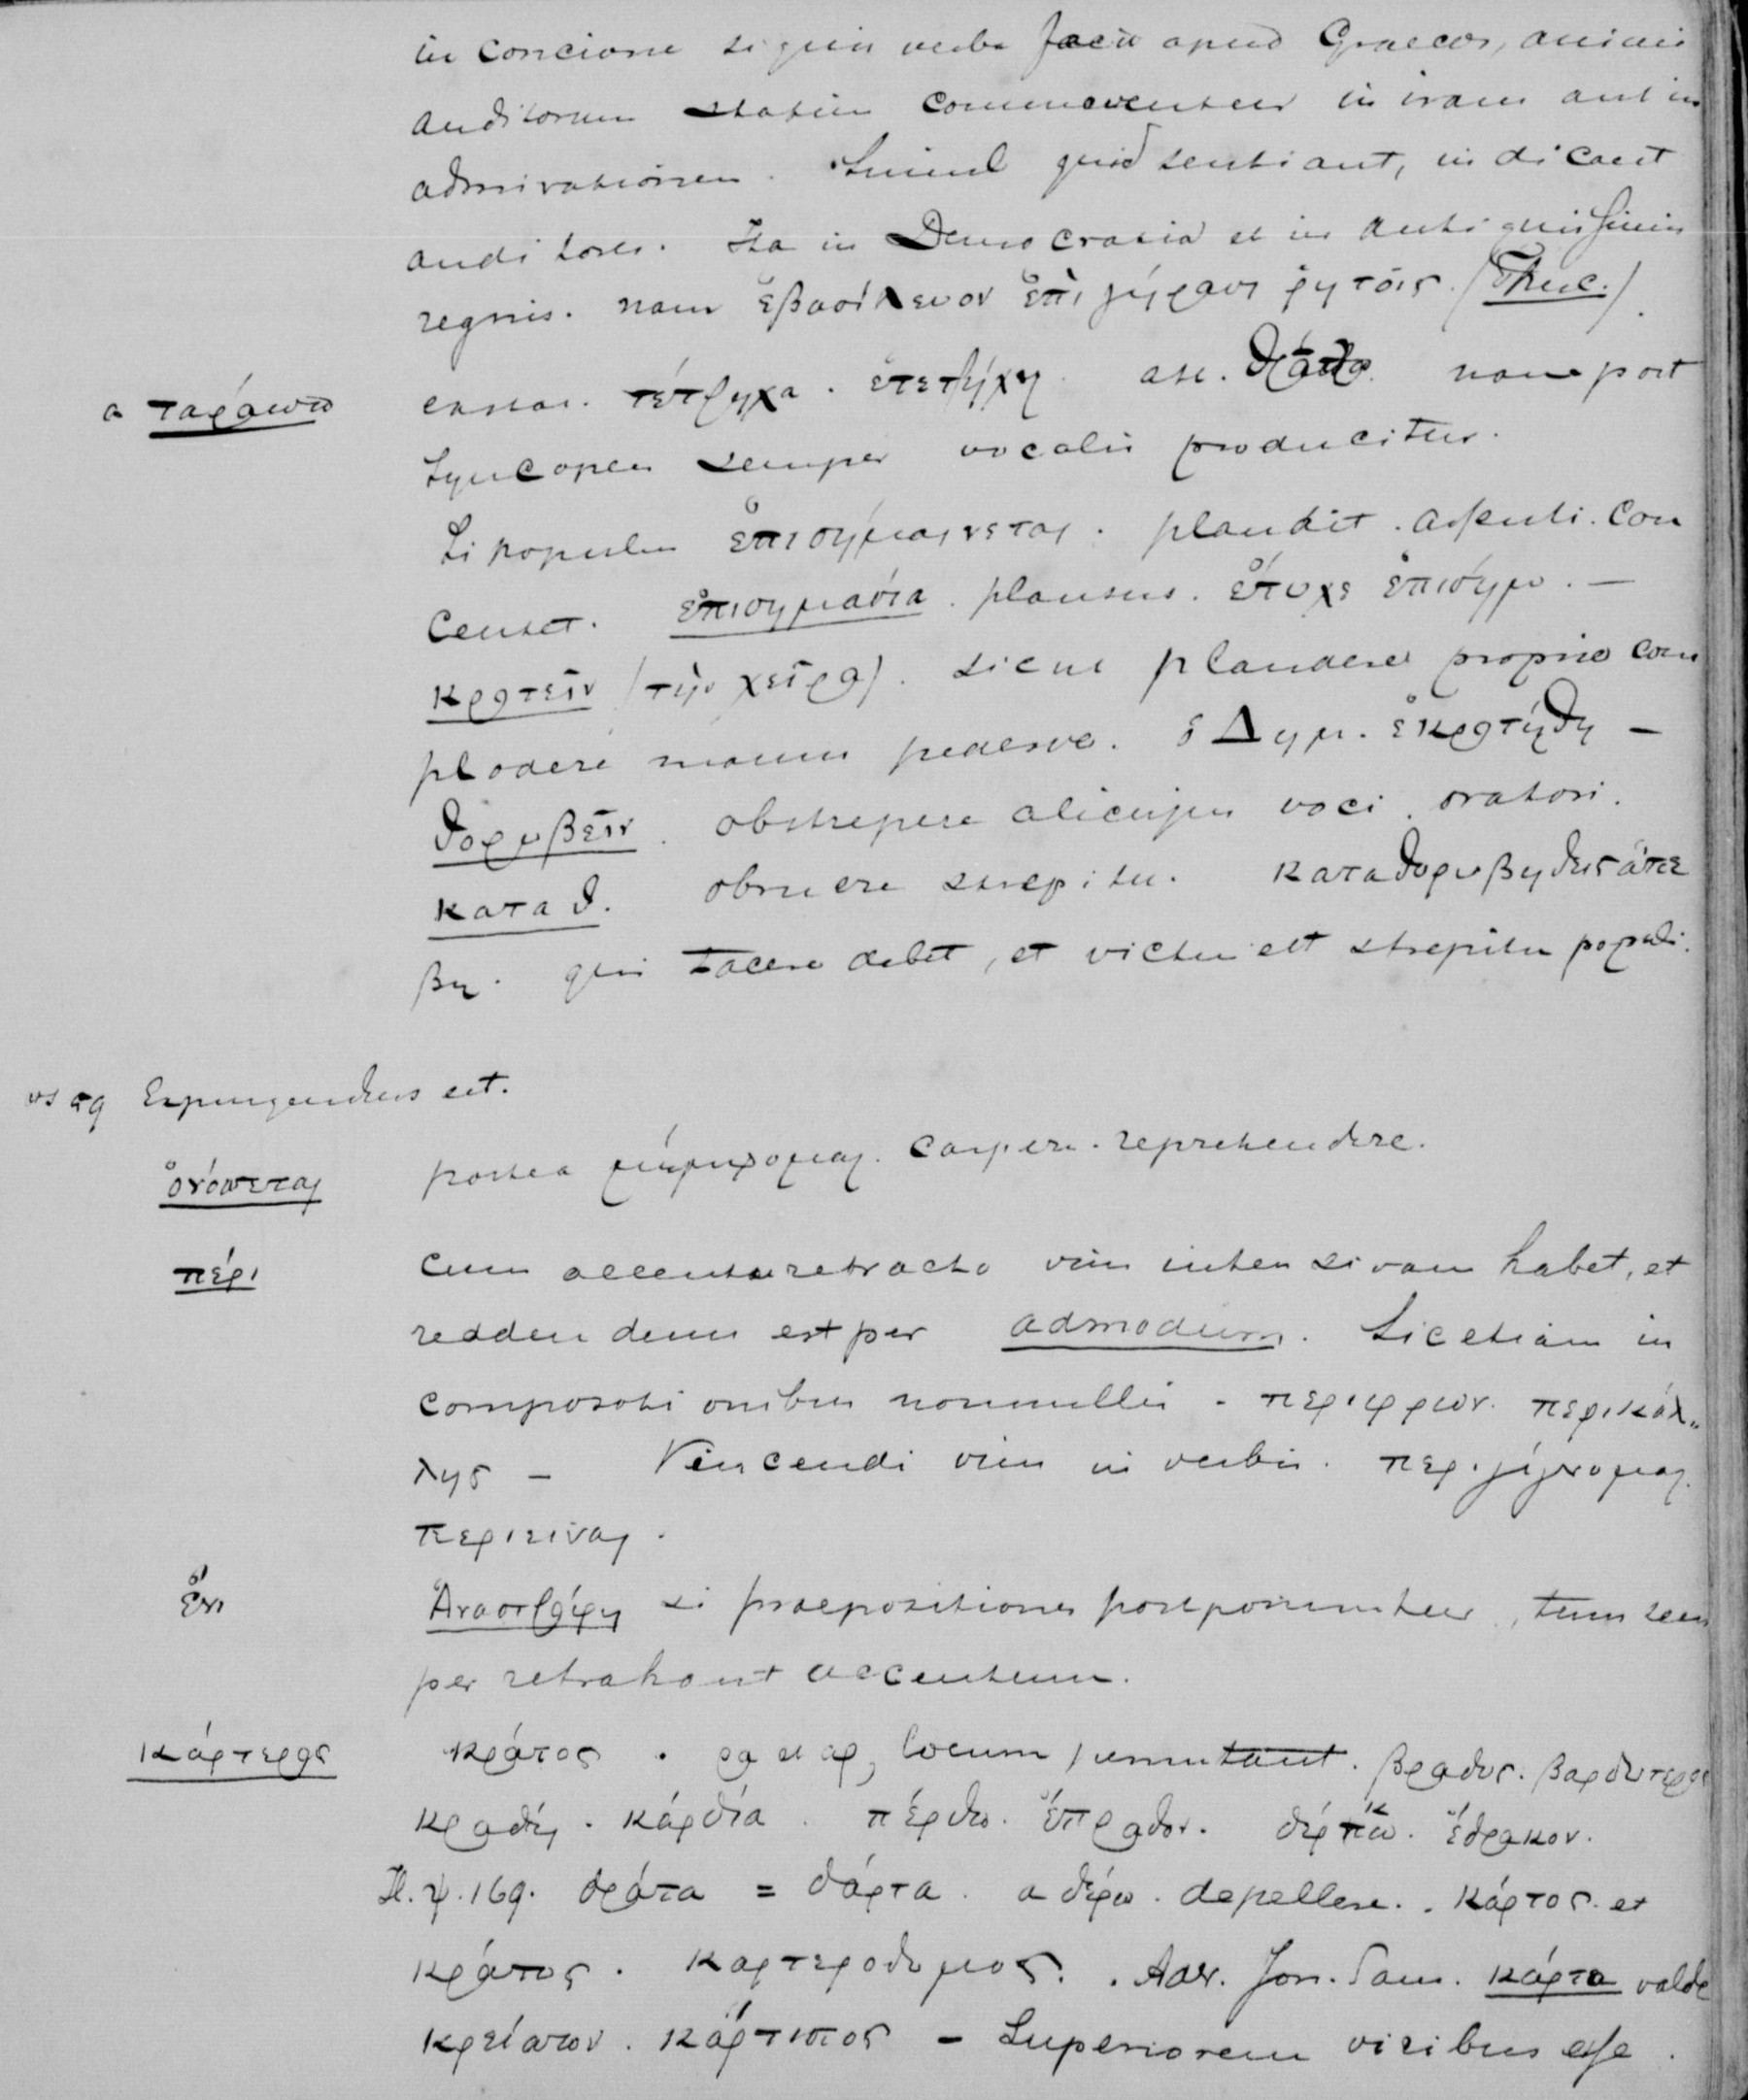 in concione si quis verba facit apud Graecos, animi
auditorum statim commoventur in iram aut in
admirationem. Simul quid sentiant, indicant
auditores. Ita in Democratia et in antiquissimis
regnis. nam ἐβασίλευον ἐπὶ γέρασι ῥητοῖς. (Thuc.)
a ταράσσω τέτρηχα. ἐτετρήχει. att. θράττω. nam post
syncopen semper vocalis producitur.
Si populus ἐπισημαίνεται. plaudit. assenti. con
sentit. ἐπισημασία. plausus. ἔτυχε ἐπισημ. —
κροτεῖν (τὴν χεῖρα). sicut plaudere proprie com
plodere manus pedesve. ὁ Δημ. ἐκροτήθη —
θορυβεῖν. obstrepere alicujus voci. oratori.
καταθ. obruere strepitu. καταθορυβηθεὶς ἀπε
βη. qui tacere debet, et victus est strepitu populi.
vs 29 Expungendus est.
ὀνόσσεται postea μέμφομαι. carpere. reprehendere.
πέρι cum accentu retracto vim intensivam habet, et
reddendum est per admodum. Sic etiam in
compositionibus nonnullis. περίφρων. περικαλ
λης — Vincendi vim in verbis. περιγίγνομαι.
περιειναι.
ἔνι Ἀναστρόφη si praepositiones postponuntur, tum sem
per retrahunt accentum.
κάρτερος κράτος. ρα et αρ, locum permutant. βραδυς. βαρδυτερος
κραδίη. καρδία. πέρθω. ἔπραθον. δέρκω. ἔδρακον.
Il. ψ. 169. δρατα = δάρτα. a δέρω. depellere. . κάρτος. et
κράτος. καρτεροθυμος. . Adv. Jon. κάρτα valde
κρείσσων. κάρτιστος — Superiorem viribus esse.